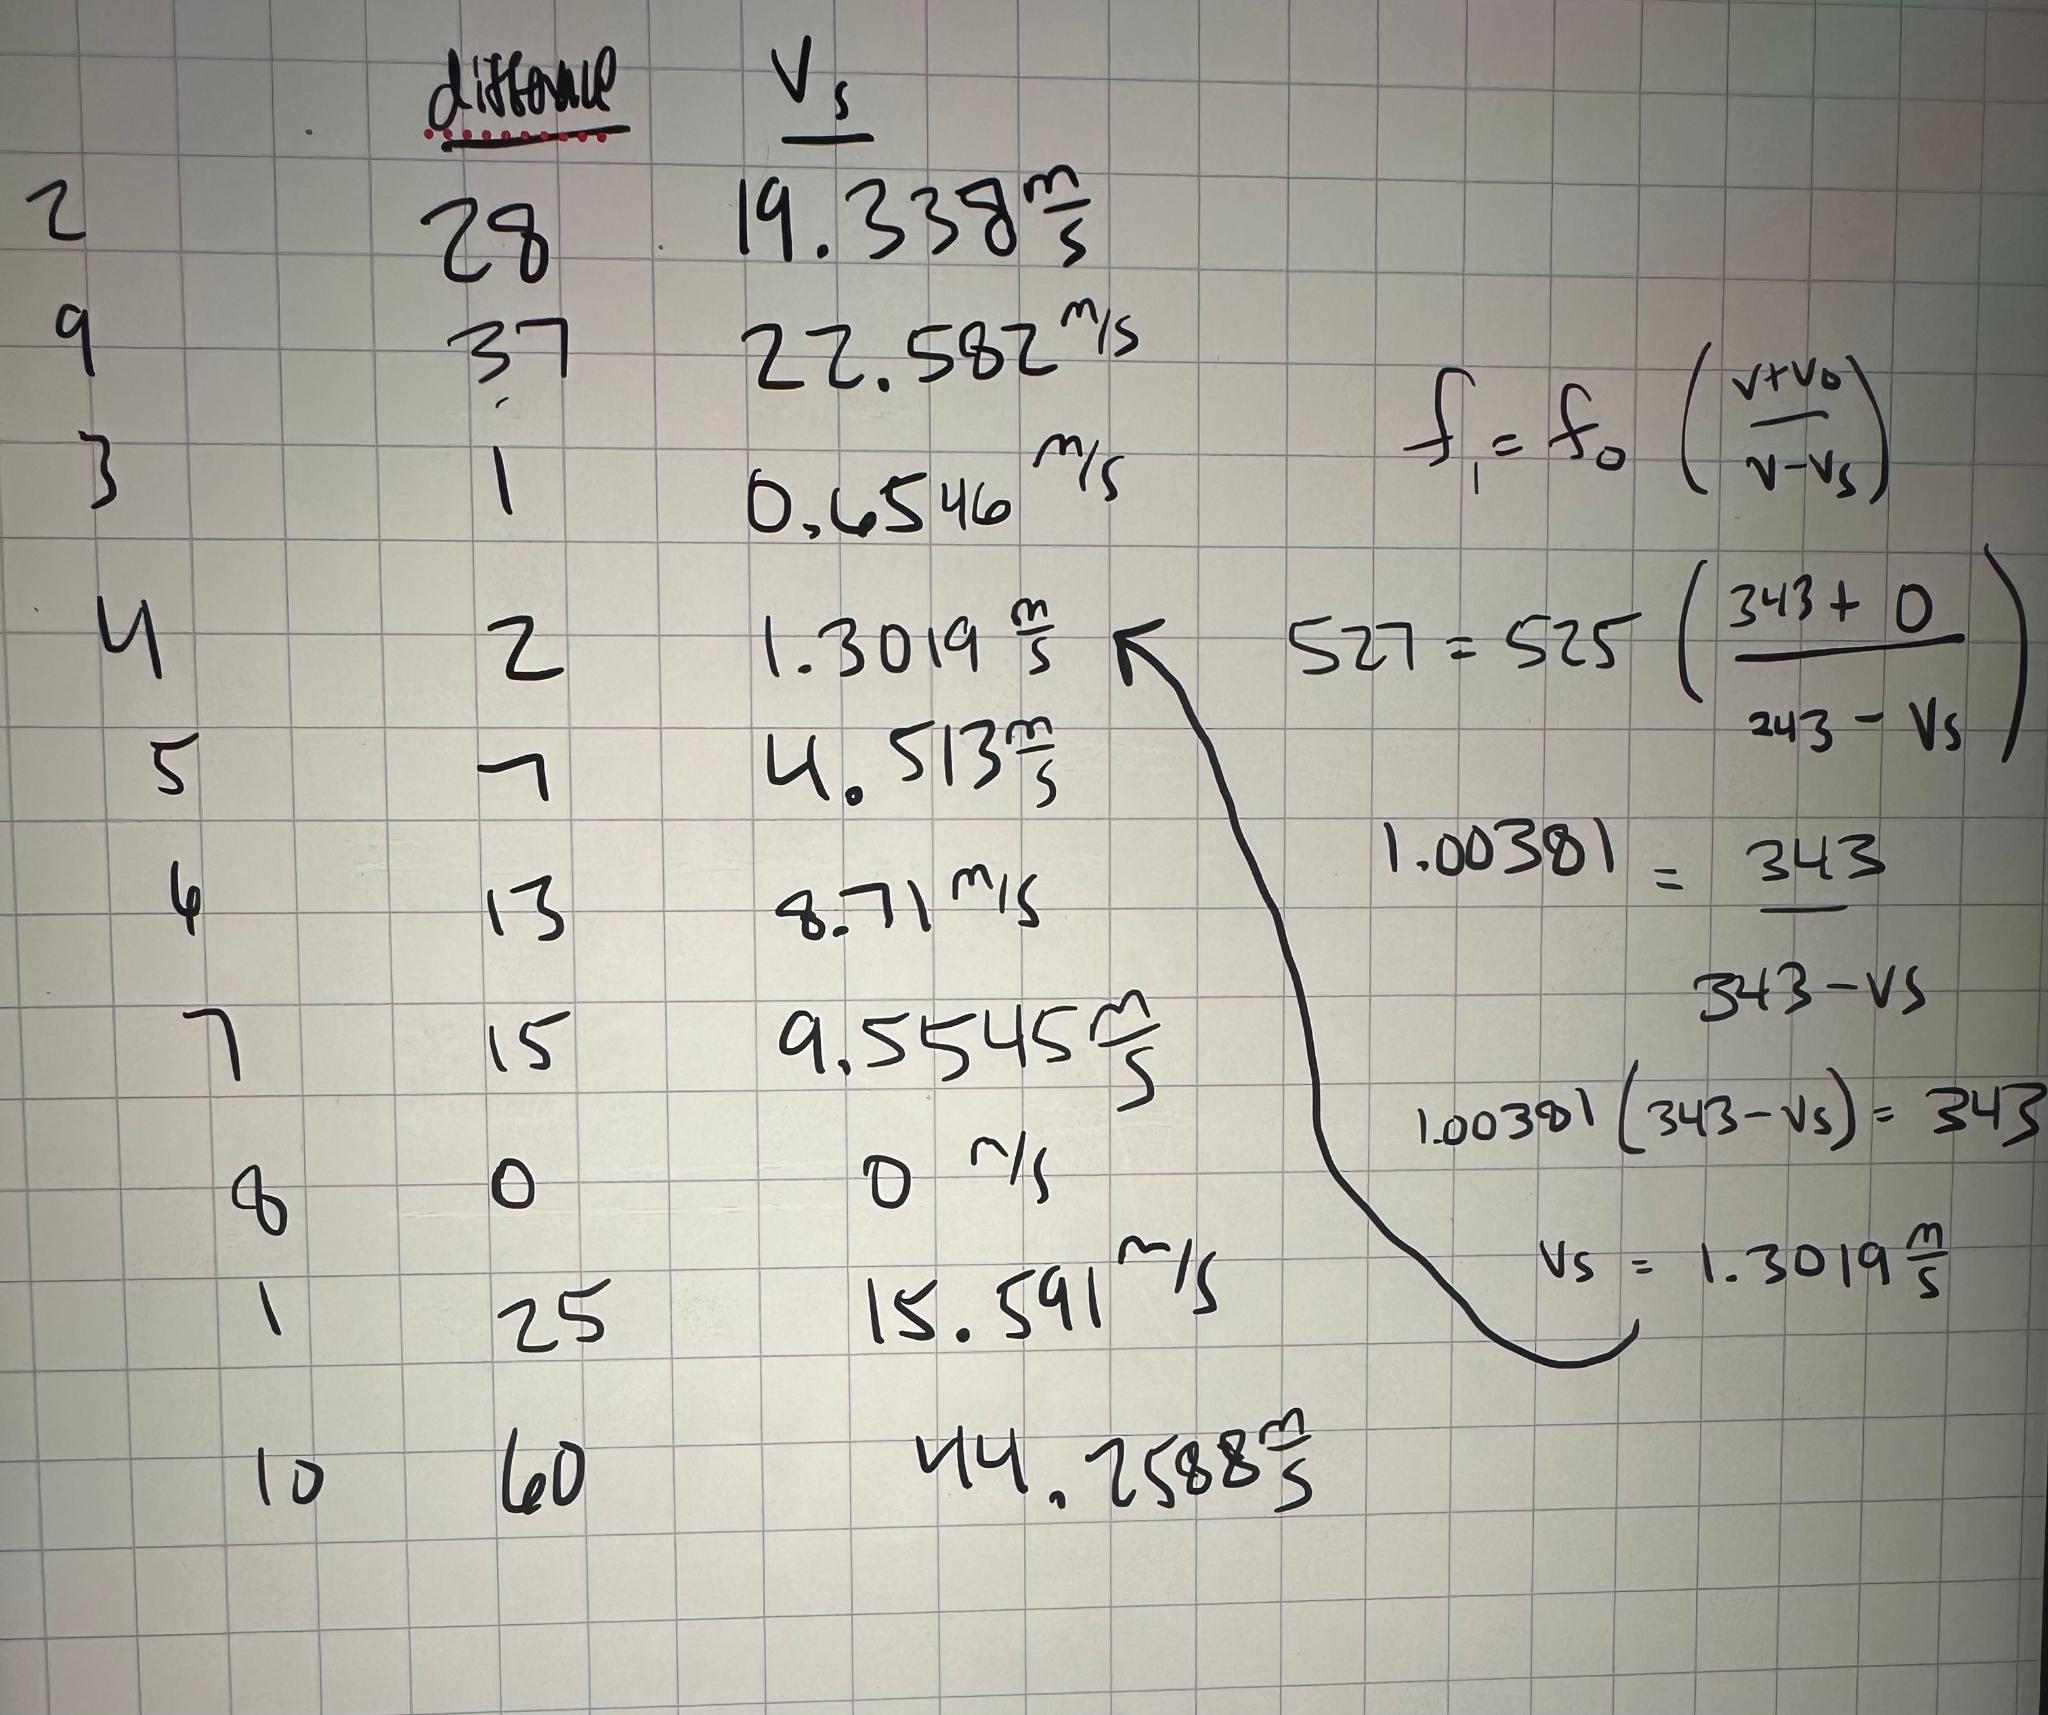 difference Vs
2 28 19.338 m/s
9 37 22.582 m/s
3 1 0.6546 m/s
4 2 1.3019 m/s
5 7 4.513 m/s
6 13 8.71 m/s
7 15 9.5545 m/s
8 0 0 m/s
1 25 15.591 m/s
10 60 44.2588 m/s
f1 = f0 (v+v0 / v-vs)
527 = 525 (343 + 0 / 243 - Vs)
1.00381 = 343 / 343-vs
1.00381 (343-vs) = 343
vs = 1.3019 m/s